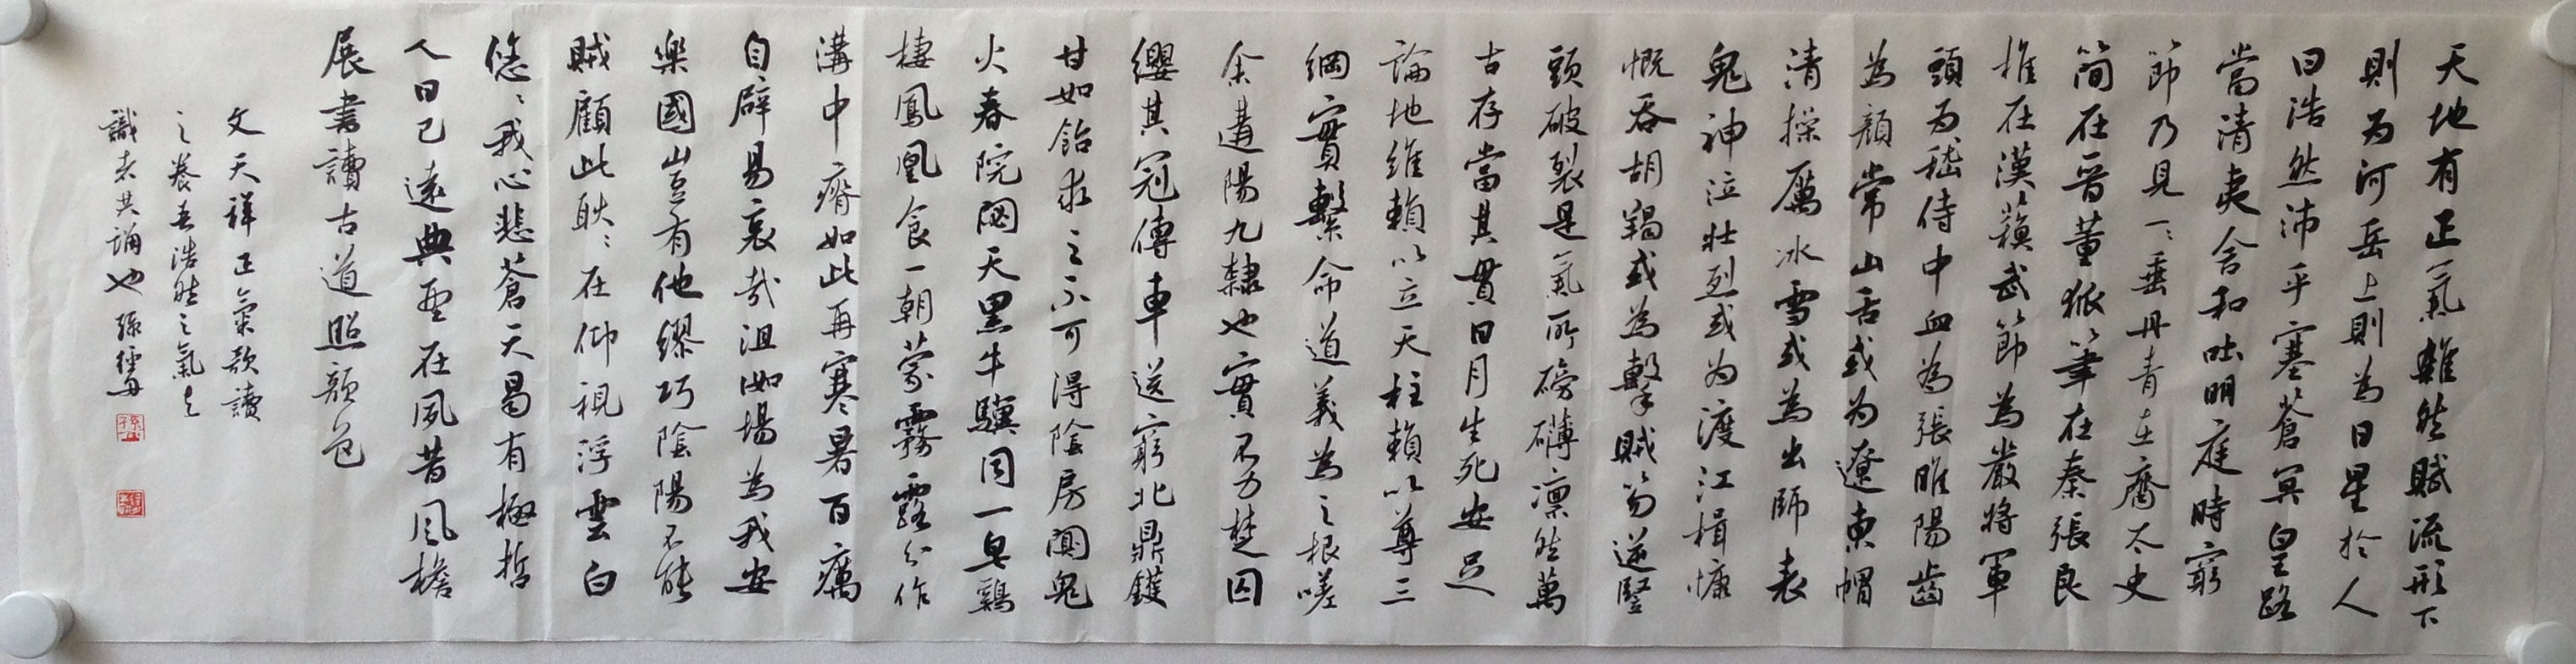 天地有正氣雜然賦流形下
則为河岳上則為日星於人
曰浩然沛乎塞蒼冥皇路
當清夷含和吐明庭時窮
節乃見一一垂丹青在齊太史
簡在晉董狐筆在秦張良
椎在漢蘇武節為嚴將軍
頭为嵇侍中血為張睢陽齒
為顏常山舌或为遼東帽
清操厲冰雪或為出師表
鬼神泣壯烈或为渡江楫慷
慨吞胡羯或為擊賊笏逆豎
頭破裂是氣所磅礴凛然萬
古存當其貫日月生死安足
論地維賴以立天柱賴以尊三
綱實繫命道義為之根嗟
余遘陽九隸也實不力楚囚
纓其冠傳車送窮北鼎鑊
甘如飴求之不可得陰房闃鬼
火春院閟天黑牛驥同一皂鷄
棲鳳凰食一朝蒙霧露分作
溝中瘠如此再寒暑百癘
自辟易哀哉沮洳場為我安
樂國豈有他繆巧陰陽不能
賊顧此耿〻在仰視浮雲白
悠〻我心悲蒼天曷有極哲
人日已遠典型在夙昔風檐
展書讀古道照顏色
文天祥正氣歌讀
之養吾浩然之氣也
識者共誦也